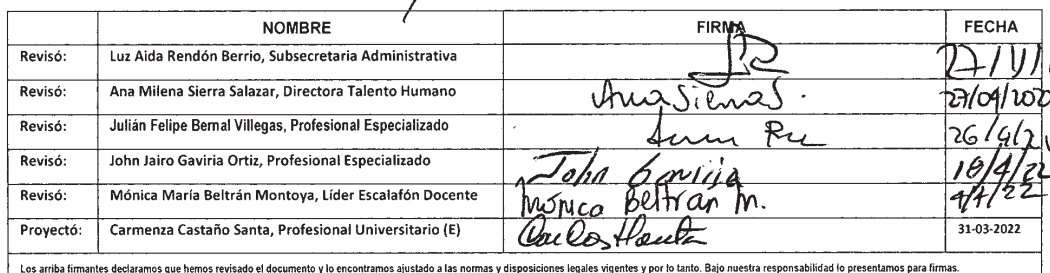 NOMBRE FIRMA FECHA
Revisó: Luz Aida Rendón Berrio, Subsecretaria Administrativa
Revisó: Ana Milena Sierra Salazar, Directora Talento Humano Ana Sierra S. 27/04/202
Revisó: Julián Felipe Bernal Villegas, Profesional Especializado 26/4/2
Revisó: John Jairo Gaviria Ortiz, Profesional Especializado John Gaviria 18/4/22
Revisó: Mónica María Beltrán Montoya, Líder Escalafón Docente Mónica Beltrán M.
Proyectó: Carmenza Castaño Santa, Profesional Universitario (E) 31-03-2022
Los arriba firmantes declaramos que hemos revisado el documento y lo encontramos ajustado a las normas y disposiciones legales vigentes y por lo tanto. Bajo nuestra responsabilidad lo presentamos para firmas.